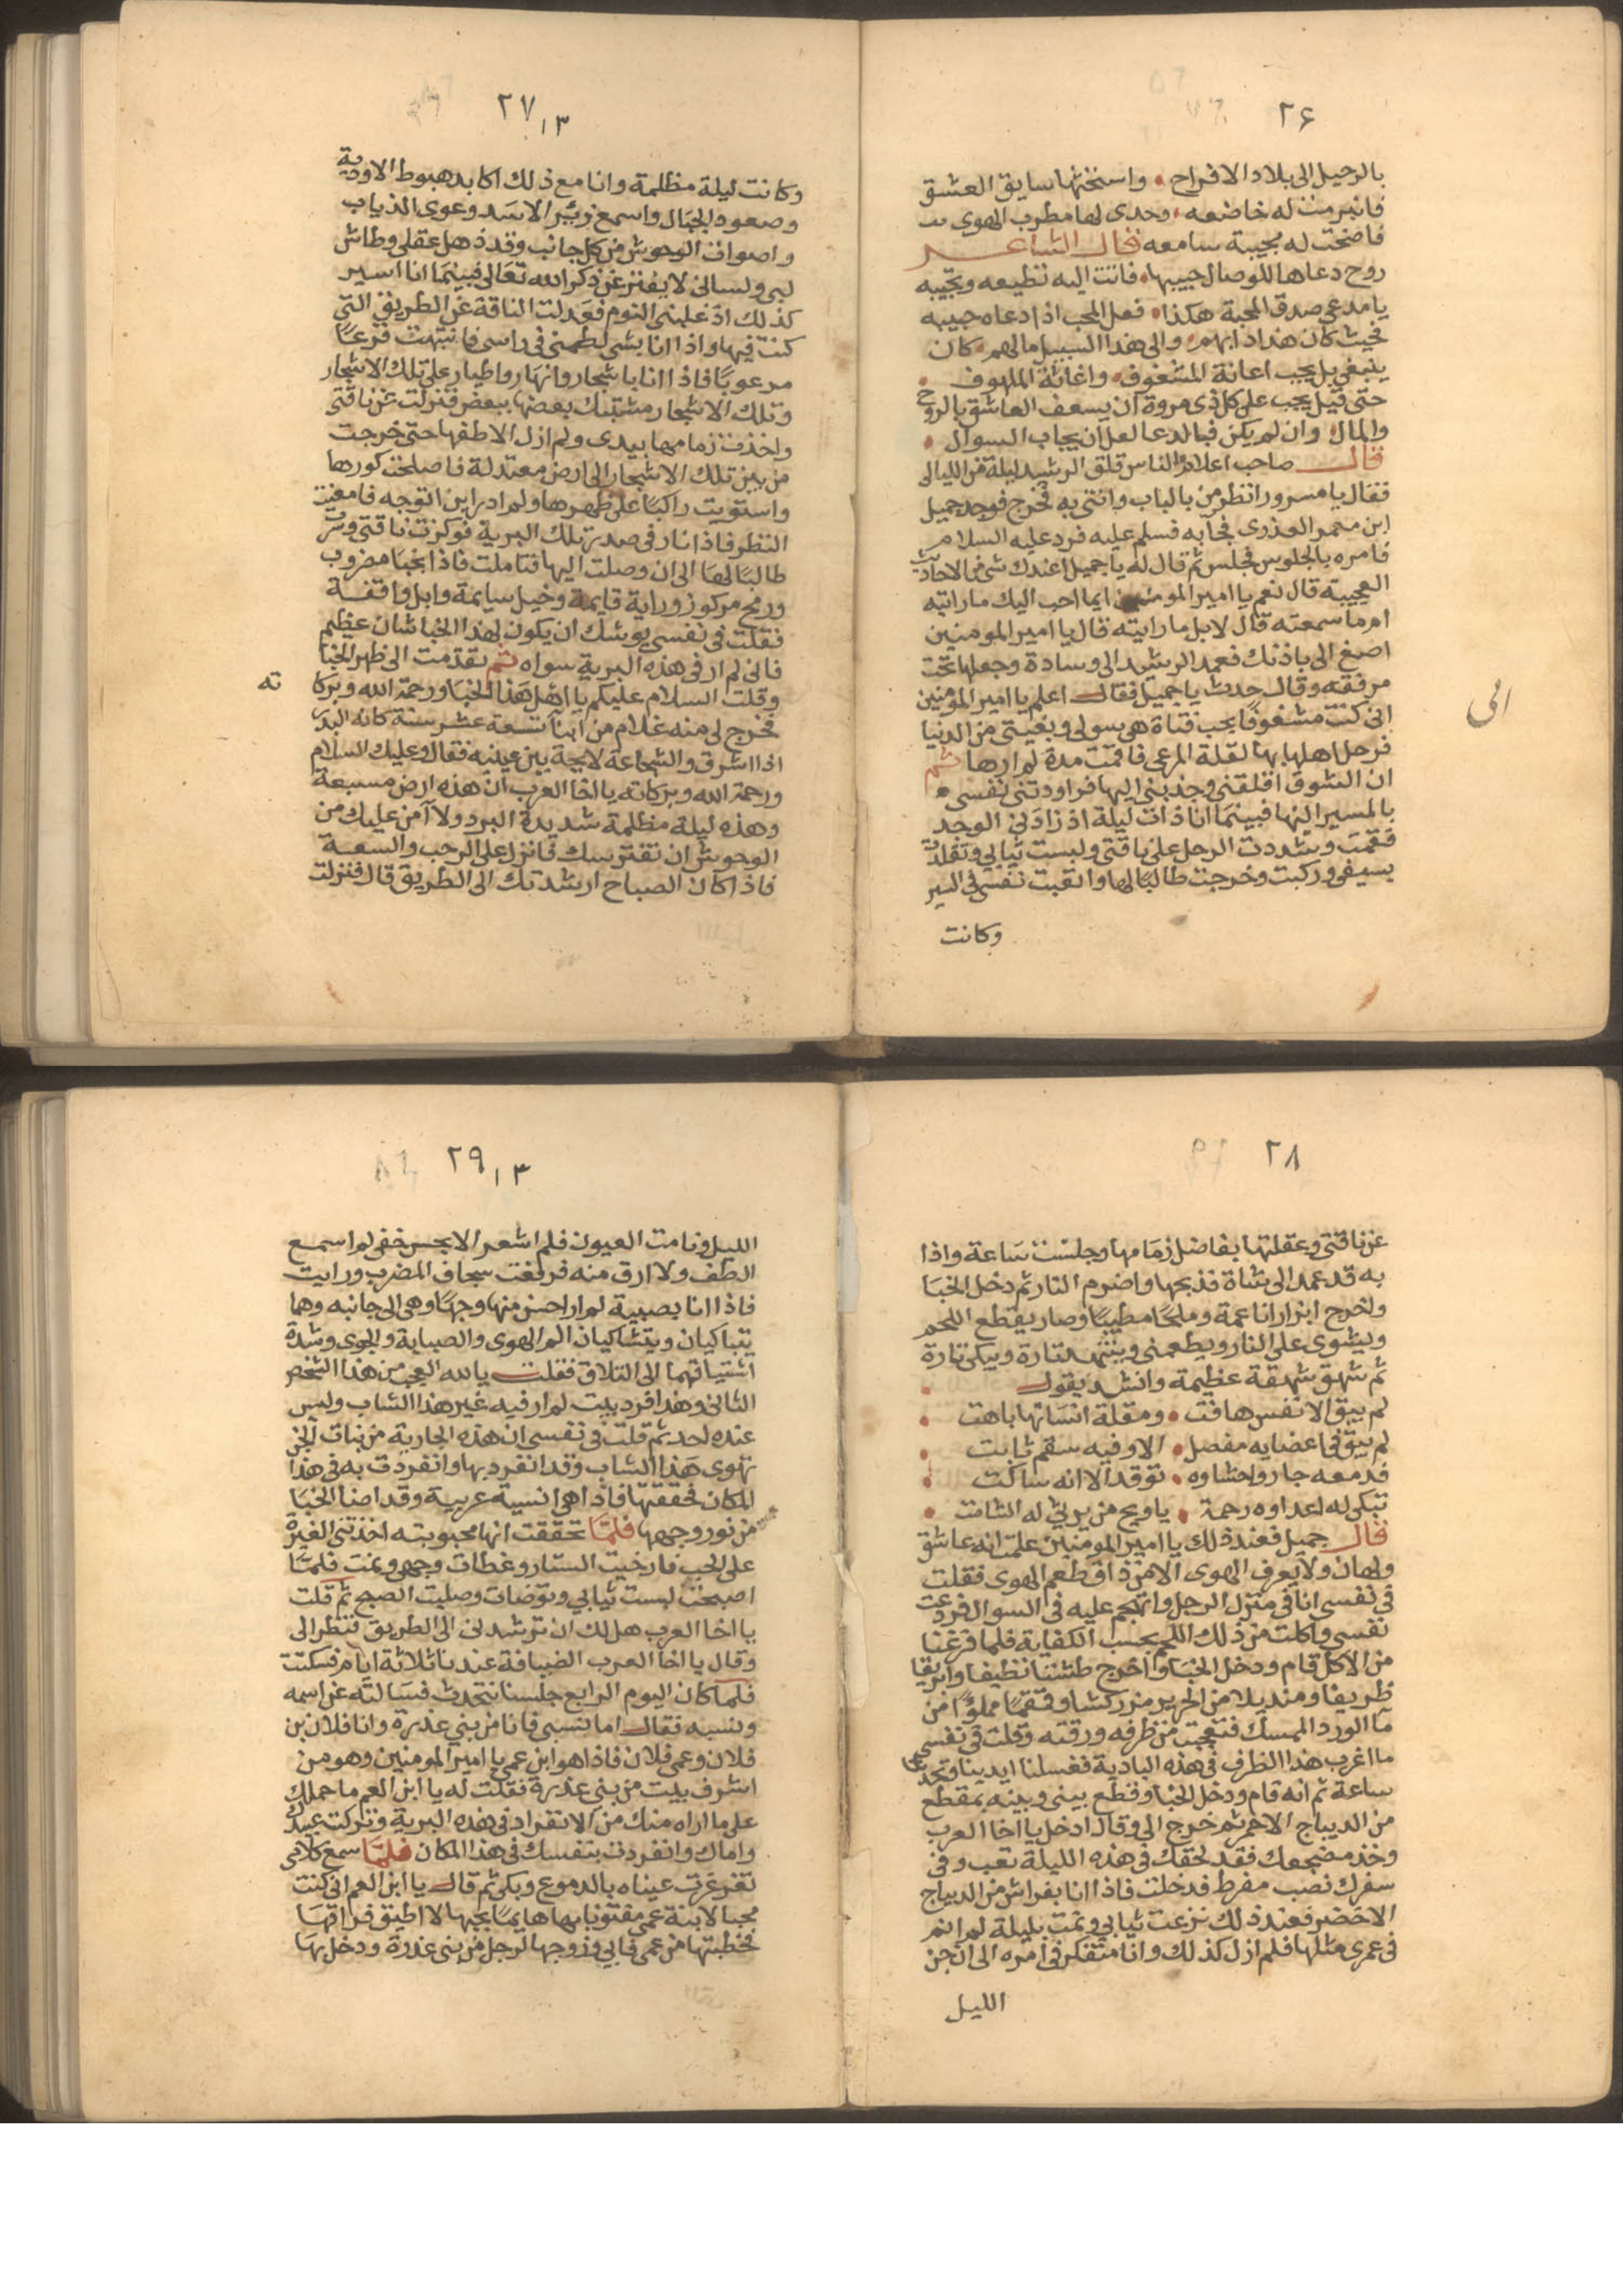 ٢٦
بالرحيل الى بلاد الافراح • واستحثها سايق العشق
فانبرمت له خاضعه • وحدى لها مطرب الهوى
فاضحت له مجيبة سامعه فقال الشاعر
روح دعاها للوصال حبيبها • فاتت اليه تطيعه وتجيبه
يا مدعى صدق المحبة هكذا • فعل المحب اذا دعاه حبيبه
فحيث كان هذا دابهم • والى هذا السبيل مالهم • كان
ينبغى بل يجب اعانة المشغوف • واغاثة الملهوف •
حتى قيل يجب على كل ذى مروة ان يسعف العاشق بالروح
والمال • وان لم يكن فبالدعا لعل ان يجاب السوال •
قال صاحب اعلام الناس قلق الرشيد ليلة من الليالى
فقال يا مسرور انظر من بالباب وائتنى به فخرج فوجد جميل
ابن معمر العذرى فجا به فسلم عليه فرد عليه السلام
فامره بالجلوس فجلس ثم قال له يا جميل اعندك شى من الاحاديث
العجيبة قال نعم يا امير المومنين ايما احب اليك ما رايته
ام ما سمعته قال لا بل ما رايته قال يا امير المومنين
اصغ الى باذنك فعمد الرشيد الى وسادة وجعلها تحت
مرفقه وقال حدث يا جميل فقال اعلم يا امير المومنين
انى كنت مشغوفا بحب فتاة هى سولى وبغيتى من الدنيا
فرحل اهلها بها لقلة المرعى فاقمت مدة لم ارها ثم
ان الشوق اقلقنى وجذبنى اليها فراودتنى نفسى •
بالمسير اليها فبينما انا ذات ليلة اذ زادنى الوجد
فقمت وشددت الرحل على ناقتى ولبست ثيابى وتقلدت
بسيفى وركبت وخرجت طالبا لها واتعبت نفسى فى السير
وكانت
الى
٢٧
١٣
وكانت ليلة مظلمة وانا مع ذلك اكابد هبوط الاودية
وصعود الجبال واسمع زئير الاسد وعوى الذياب
واصوات الوحوش من كل جانب وقد ذهل عقلى وطاش
لبى ولسانى لا يفتر عن ذكر الله تعالى فبينما انا اسير
كذلك اذ غلبنى النوم فعدلت الناقة عن الطريق التى
كنت فيها واذا انا بشى لطمنى فى راسى فانتبهت فزعا
مرعوبا فاذا انا باشجار وانهار واطيار على تلك الاشجار
وتلك الاشجار مشتبك بعضها ببعض فنزلت عن ناقتى
واخذت زمامها بيدى ولم ازل الاطفها حتى خرجت
من بين تلك الاشجار الى ارض معتدلة فاصلحت كورها
واستويت راكبا على ظهرها ولم ادر اين اتوجه فامعنت
النظر فاذا نار فى صدر تلك البرية فوكزت ناقتى وسرت
طالبا لها الى ان وصلت اليها فتاملت فاذا بخبا مضروب
ورمح مركوز وراية قايمة وخيل سايمة وابل واقفة
فقلت فى نفسى يوشك ان يكون لهذا الخبا شان عظيم
فانى لم ار فى هذه البرية سواه ثم تقدمت الى ظهر الخبا
وقلت السلام عليكم يا اهل هذا الخبا ورحمة الله وبركا ته
فخرج لى منه غلام من ابنا تسعة عشر سنة كانه البدر
اذا اشرق والشجاعة لايحة بين عينيه فقال وعليك السلام
ورحمة الله وبركاته يا اخا العرب ان هذه ارض مسبعة
وهذه ليلة مظلمة شديدة البرد ولا آمن عليك من
الوحوش ان تفترسك فانزل على الرحب والسعة
فاذا كان الصباح ارشدتك الى الطريق قال فنزلت
٢٨
عن ناقتى وعقلتها بفاضل زمامها وجلست ساعة واذا
به قد عمد الى شاة فذبحها واضرم النار ثم دخل الخبا
واخرج ابزارا ناعمة وملحا مطيبا وصار يقطع اللحم
ويشوى على النار ويطعمنى ويتنهد تارة ويبكى تارة
ثم شهق شهقة عظيمة وانشد يقول •
لم يبق الا نفس هافت • ومقلة انسانها باهت •
لم يبق فى اعضايه مفصل • الا وفيه سقم ثابت •
فدمعه جار واحشاوه • توقد الا انه ساكت •
تبكى له اعداوه رحمة • يا ويح من يرثى له الشامت •
قال جميل فعند ذلك يا امير المومنين علمت انه عاشق
ولهان ولا يعرف الهوى الا من ذاق طعم الهوى فقلت
فى نفسى انا فى منزل الرجل واتهجم عليه فى السوال فردعت
نفسى واكلت من ذلك اللحم بحسب الكفاية فلما فرغنا
من الاكل قام ودخل الخبا واخرج طشتا نظيفا وابريقا
ظريفا ومنديلا من الحرير مزركشا وقمقما مملوا من
ما الورد الممسك فتعجبت من ظرفه ورقته وقلت فى نفسى
ما اغرب هذا الظرف فى هذه البادية فغسلنا ايدينا وتحدثنا
ساعة ثم انه قام ودخل الخبا وقطع بينى وبينه بمقطع
من الديباج الاحمر ثم خرج الى وقال ادخل يا اخا العرب
وخذ مضجعك فقد لحقك فى هذه الليلة تعب وفى
سفرك نصب مفرط فدخلت فاذا انا بفراش من الديباج
الاخضر فعند ذلك نزعت ثيابى ونمت بليلة لم انم
فى عمرى مثلها فلم ازل كذلك وانا متفكر فى امره الى ان جن
الليل
٢٩
١٣
الليل ونامت العيون فلم اشعر الا بحس خفى لم اسمع
الطف ولا ارق منه فرفعت سجاف المضرب ورايت
فاذا انا بصبية لم ار احسن منها وجها وهى الى جانبه وهما
يتباكيان ويتشاكيان الم الهوى والصبابة والجوى وشدة
اشتياقهما الى التلاق فقلت يا لله العجب من هذا الشخص
الثانى وهذا فرد بيت لم ار فيه غير هذا الشاب وليس
عنده احد ثم قلت فى نفسى ان هذه الجارية من بنات الجن
تهوى هذا الشاب وقد انفرد بها وانفردت به فى هذا
المكان فحققتها فاذا هى انسية عربية وقد اضا الخبا
من نور وجهها فلما تحققت انها محبوبته اخذتنى الغيرة
على الحب فارخيت الستار وغطات وجهى ونمت فلما
اصبحت لبست ثيابى وتوضات وصليت الصبح ثم قلت
يا اخا العرب هل لك ان ترشدنى الى الطريق فنظر الى
وقال يا اخا العرب الضيافة عندنا ثلاثة ايام فسكتت
فلما كان اليوم الرابع جلسنا نتحدث فسالته عن اسمه
ونسبه فقال اما نسبى فانا من بنى عذرة وانا فلان بن
فلان وعمى فلان فاذا هو ابن عمى يا امير المومنين وهو من
اشرف بيت من بنى عذرة فقلت له يا ابن العم ما حملك
على ما اراه منك من الانفراد فى هذه البرية وتركت عبيدك
واماك وانفردت بنفسك فى هذا المكان فلما سمع كلامى
تغرغرت عيناه بالدموع وبكى ثم قال يا ابن العم انى كنت
محبا لابنة عمى مفتونا بها هايما بحبها لا اطيق فراقها
فخطبتها من عمى فابى وزوجها لرجل من بنى عذرة ودخل بها